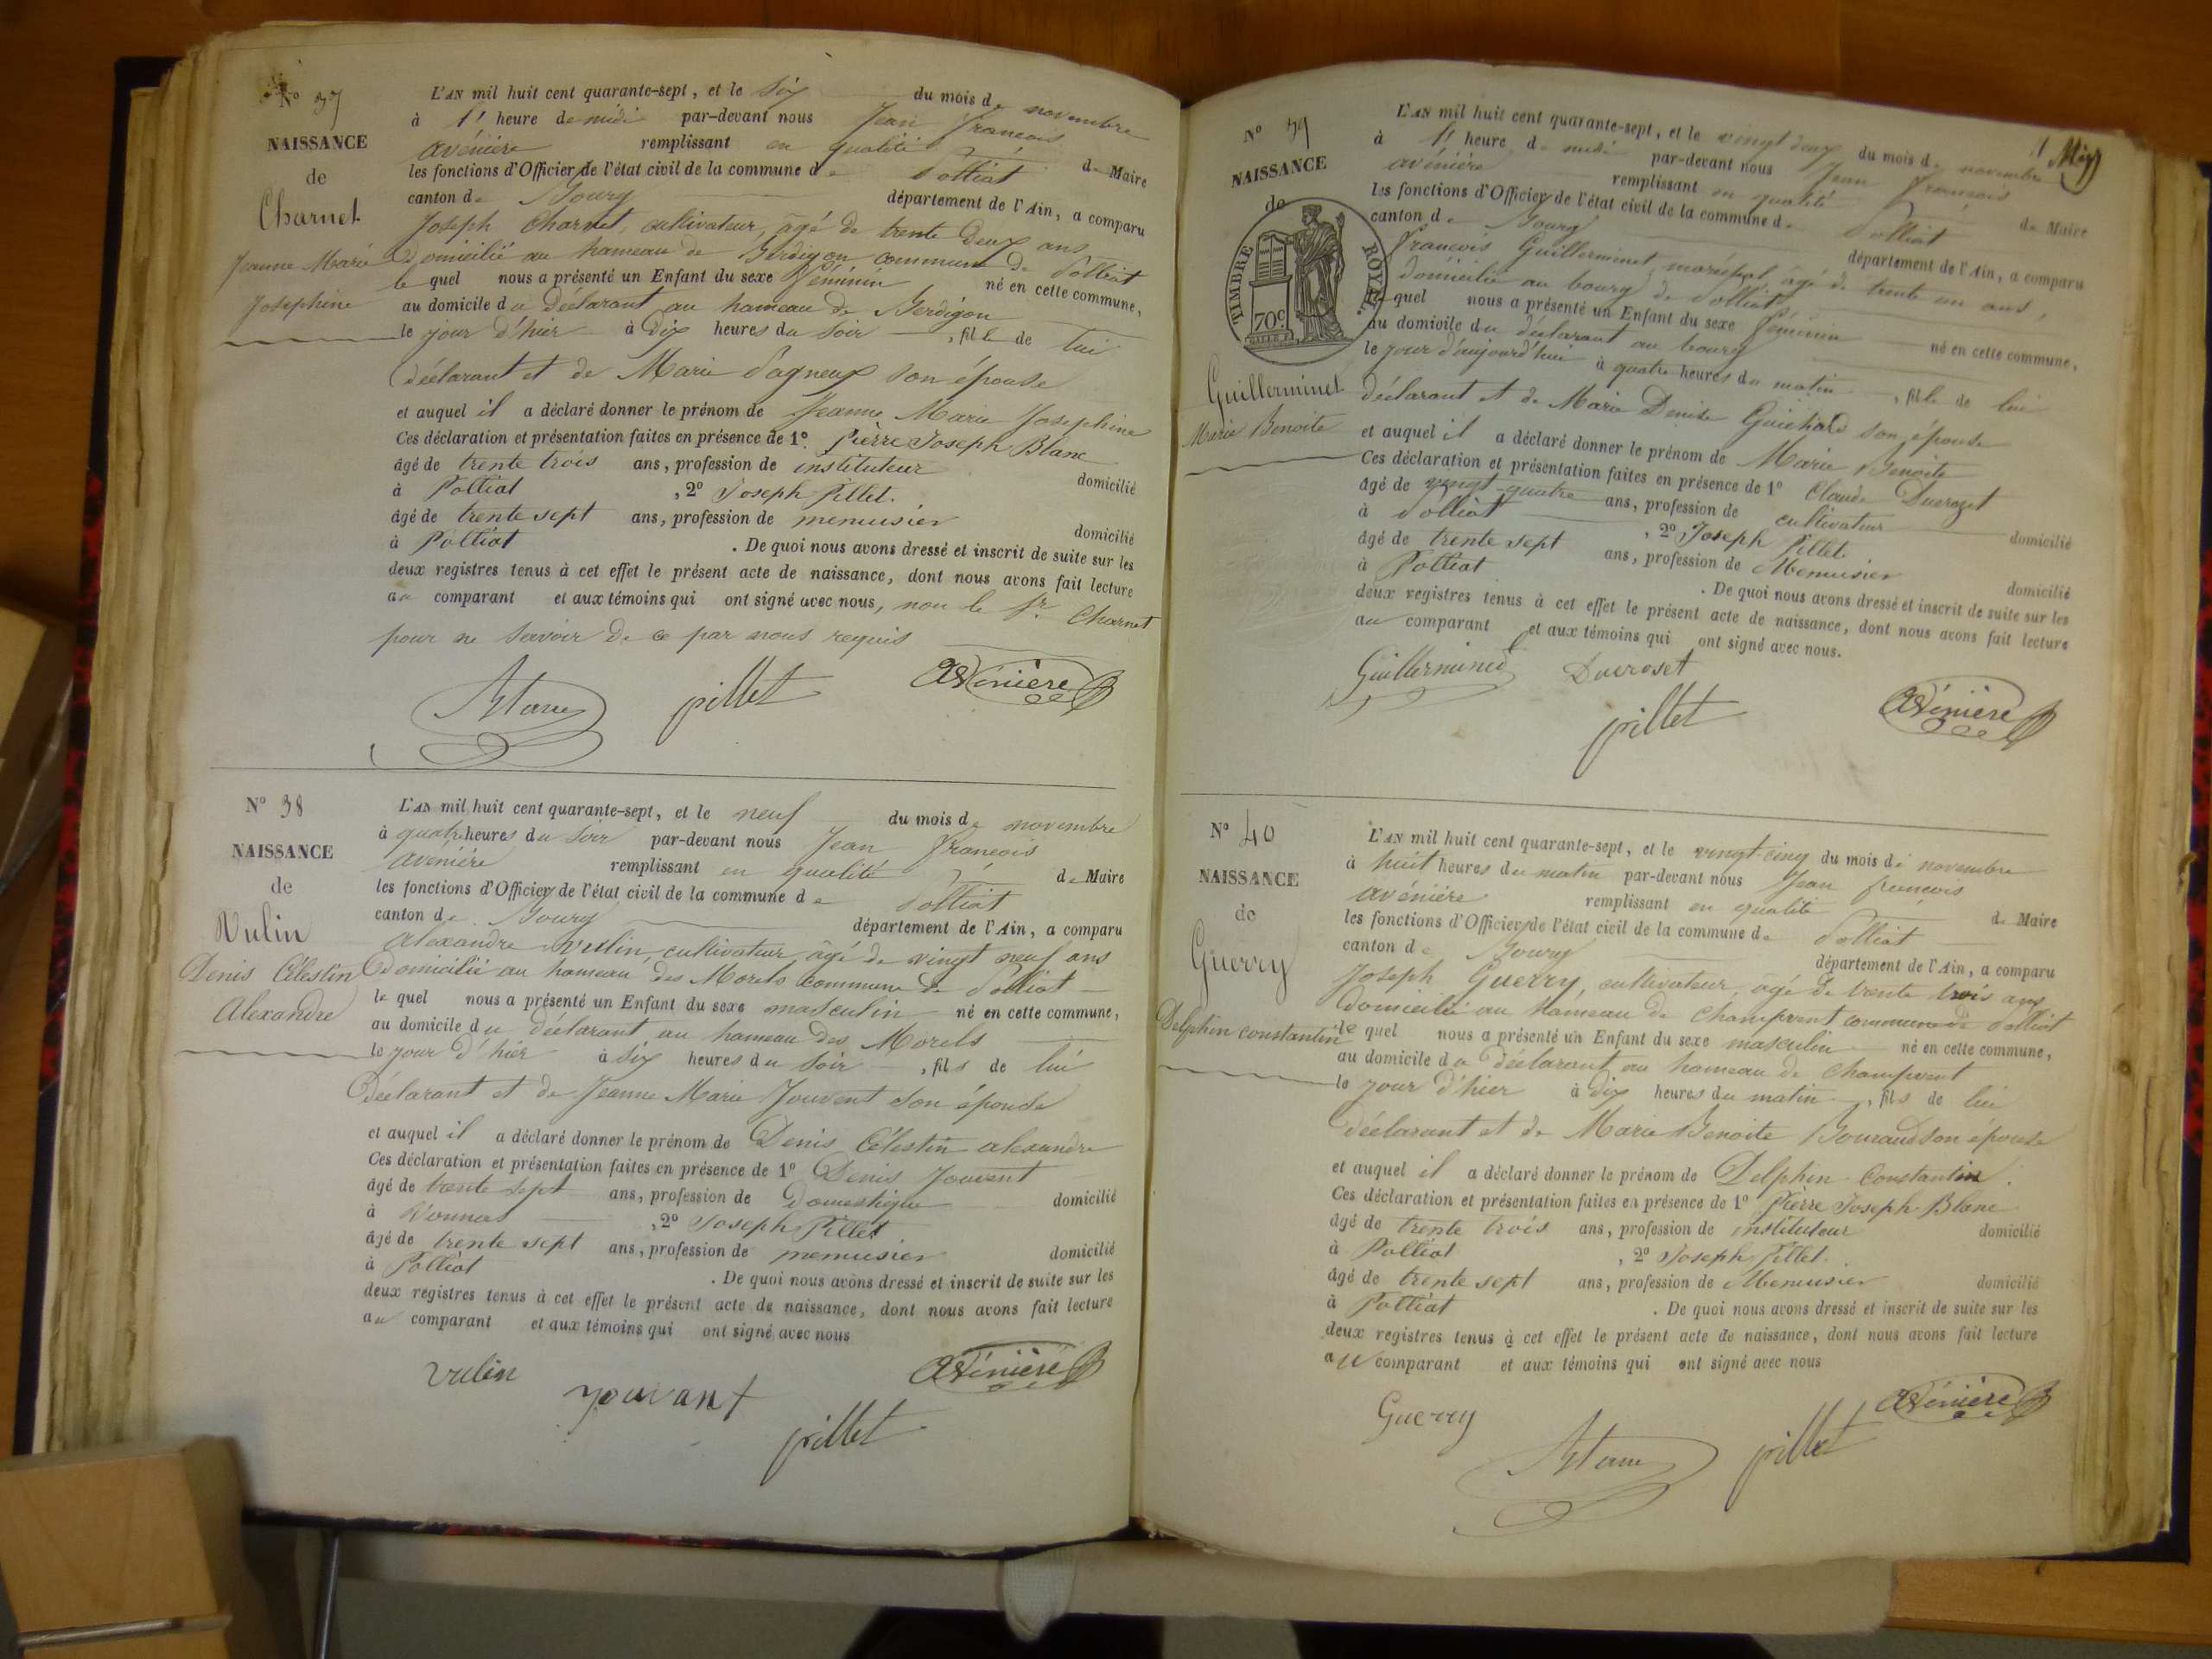 N° 37
NAISSANCE
de
Charnet
Jeanne Marie
Josephine
L'AN mil huit cent quarante-sept, et le six du mois de novembre
à l' heure de midi par-devant nous Jean François
avénière remplissant en qualité de Maire
les fonctions d'Officier de l'état civil de la commune de Polliat
canton de Bourg département de l'Ain, a comparu
Joseph Charnet, cultivateur, âgé de trente deux ans
domicilié au hameau de commune de Polliat
le quel nous a présenté un Enfant du sexe féminin né en cette commune,
au domicile du déclarant au hameau de
le jour d'hier à dix heures du soir, fille de lui
déclarant et de Marie Pagneux son épouse
et auquel il a déclaré donner le prénom de Jeanne Marie Josephine
Ces déclaration et présentation faites en présence de 1° Pierre Joseph Blanc
âgé de trente trois ans, profession de instituteur domicilié
à Polliat, 2° Joseph Pillet.
âgé de trente sept ans, profession de menuisier domicilié
à Polliat. De quoi nous avons dressé et inscrit de suite sur les
deux registres tenus à cet effet le présent acte de naissance, dont nous avons fait lecture
au comparant et aux témoins qui ont signé avec nous, non le Sr. Charnet
pour ne savoir de ce par nous requis
Blanc pillet avénière
N° 38
NAISSANCE
de
Vulin
Denis Célestin
Alexandre
L'AN mil huit cent quarante-sept, et le neuf du mois de novembre
à quatre heures du soir par-devant nous Jean françois
avénière remplissant en qualité de Maire
les fonctions d'Officier de l'état civil de la commune de Polliat
canton de Bourg département de l'Ain, a comparu
alexandre vulin, cultivateur, âgé de vingt neuf ans
domicilié au hameau des Morels commune de Polliat
le quel nous a présenté un Enfant du sexe masculin né en cette commune,
au domicile du déclarant au hameau des Morels
le jour d'hier à six heures du soir, fils de lui
déclarant et de Jeanne Marie Jouvent son épouse
et auquel il a déclaré donner le prénom de Denis Célestin alexandre
Ces déclaration et présentation faites en présence de 1° Denis Jouvent
âgé de trente sept ans, profession de domestique domicilié
à Vonnas, 2° Joseph Pillet
âgé de trente sept ans, profession de menuisier domicilié
à Polliat. De quoi nous avons dressé et inscrit de suite sur les
deux registres tenus à cet effet le présent acte de naissance, dont nous avons fait lecture
au comparant et aux témoins qui ont signé avec nous
vulin jouvant pillet avénière
N° 39
NAISSANCE
de
TIMBRE ROYAL
70c
Guillerminet
Marie Benoite
L'AN mil huit cent quarante-sept, et le vingt deux du mois de novembre
à l' heure de midi par-devant nous Jean françois
avénière remplissant en qualité de Maire
les fonctions d'Officier de l'état civil de la commune de Polliat
canton de Bourg département de l'Ain, a comparu
francois Guillerminet, maréchal, âgé de trente un ans,
domicilié au bourg de Polliat
le quel nous a présenté un Enfant du sexe féminin né en cette commune,
au domicile du déclarant au bourg
le jour d'aujourd'hui à quatre heures du matin, fille de lui
déclarant et de Marie Denise Guichard son épouse
et auquel il a déclaré donner le prénom de Marie Benoite
Ces déclaration et présentation faites en présence de 1° Claude Ducroset
âgé de vingt-quatre ans, profession de cultivateur domicilié
à Polliat, 2° Joseph Pillet
âgé de trente sept ans, profession de Menuisier domicilié
à Polliat. De quoi nous avons dressé et inscrit de suite sur les
deux registres tenus à cet effet le présent acte de naissance, dont nous avons fait lecture
au comparant et aux témoins qui ont signé avec nous.
Guillerminet Ducroset pillet avénière
N° 40
NAISSANCE
de
Guerry
Delphin constantin
L'AN mil huit cent quarante-sept, et le vingt-cinq du mois de novembre
à huit heures du matin par-devant nous Jean francois
avénière remplissant en qualité de Maire
les fonctions d'Officier de l'état civil de la commune de Polliat
canton de Bourg département de l'Ain, a comparu
Joseph Guerry, cultivateur, âgé de trente trois ans
domicilié au hameau de Champvent commune de Polliat
le quel nous a présenté un Enfant du sexe masculin né en cette commune,
au domicile du déclarant au hameau de Champvent
le jour d'hier à dix heures du matin, fils de lui
déclarant et de Marie Benoite Bouraud son épouse
et auquel il a déclaré donner le prénom de Delphin Constantin.
Ces déclaration et présentation faites en présence de 1° Pierre Joseph Blanc
âgé de trente trois ans, profession de instituteur domicilié
à Polliat, 2° Joseph Pillet.
âgé de trente sept ans, profession de Menuisier domicilié
à Polliat. De quoi nous avons dressé et inscrit de suite sur les
deux registres tenus à cet effet le présent acte de naissance, dont nous avons fait lecture
au comparant et aux témoins qui ont signé avec nous
Guerry Blanc pillet avénière